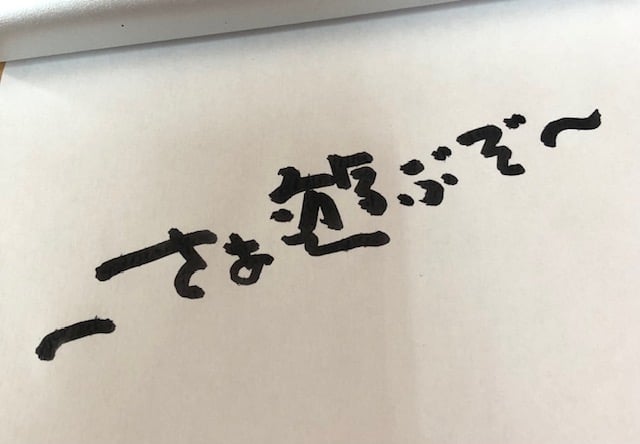 ーさぁ遊ぶぞ〜